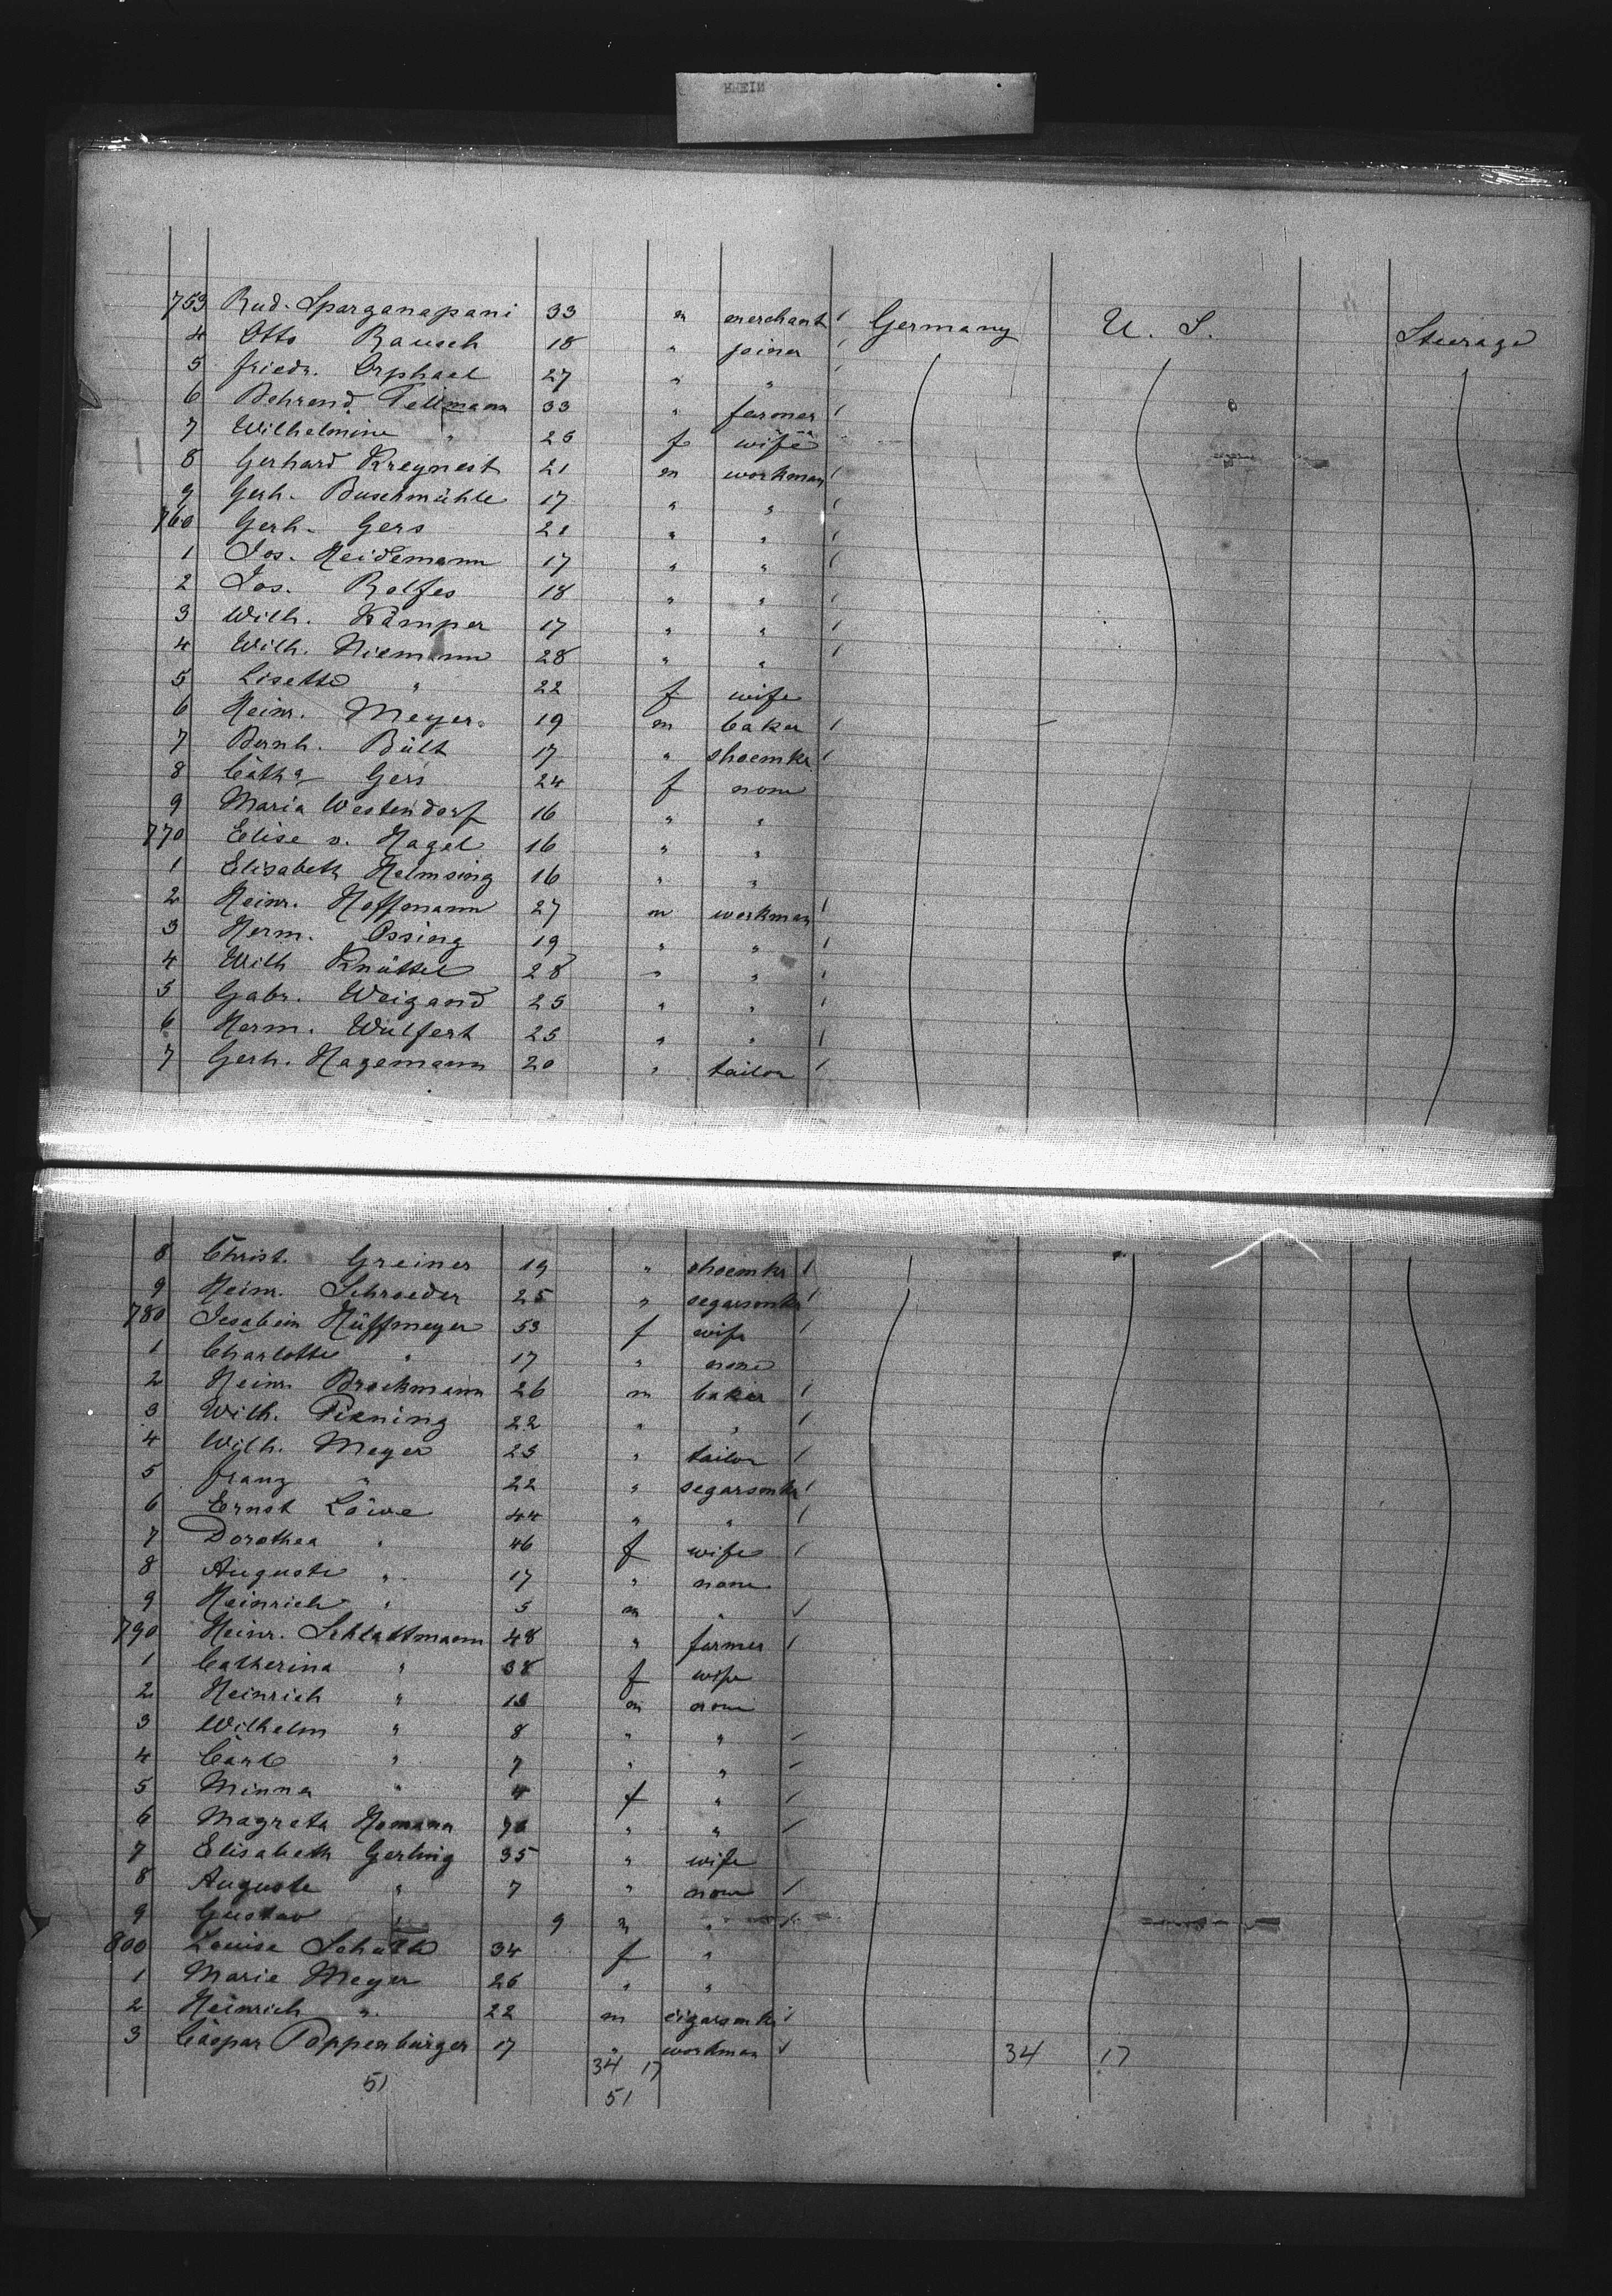 RHEIN
753 Rud. Sparganapani 33 m merchant / Germany U. S. Steerage
4 Otto Rausch 18 " joiner /
5 Friedr. Orphael 27 " " /
6 Behrend Tellmann 33 " farmer /
7 Wilhelmine " 25 f wife
8 Gerhard Kreynest 21 m workman /
9 Gerh. Buschmühle 17 " " /
760 Gerh. Gers 21 " " /
1 Jos. Heidemann 17 " " /
2 Jos. Rolfes 18 " " /
3 Wilh. Kämper 17 " " /
4 Wilh. Niemann 28 " " /
5 Lisette " 22 f wife
6 Heinr. Meyer 19 m baker /
7 Bernh. Bült 17 " shoemkr /
8 Catha Gers 24 f none
9 Maria Westendorf 16 " "
770 Elise v. Hagel 16 " "
1 Elisabeth Helmsing 16 " "
2 Heinr. Hoffmann 27 m workman /
3 Herm. Ossing 19 " " /
4 Wilh Knüttel 28 " " /
5 Gabr. Weigand 25 " " /
6 Herm. Wulfert 25 " " /
7 Gerh. Hagemann 20 " tailor /
8 Christ. Greiner 19 " shoemkr /
9 Heinr. Schroeder 25 " segarsmkr /
780 Jesabein Hüffmeyer 53 f wife /
1 Charlotte " 17 " none
2 Heinr. Brockmann 26 m baker /
3 Wilh. Piening 22 " " /
4 Wilh. Meyer 25 " tailor /
5 Franz " 22 " segarsmkr /
6 Ernst Löwe 44 " " /
7 Dorothea " 46 f wife /
8 Auguste " 17 " none
9 Heinrich " 5 m " /
790 Heinr. Schlattmann 48 " farmer /
1 Catherina " 38 f wife
2 Heinrich " m none
3 Wilhelm " 8 " " /
4 Carl " 7 " " /
5 Minna " 4 f " /
6 Magreta Homann " " /
7 Elisabeth Gerling 35 " wife
8 Auguste " 7 " none /
9 Gustav " 9 m "
800 Louise Schulte 34 f "
1 Marie Meyer 26 " "
2 Heinrich " 22 m cigarsmkr /
3 Caspar Poppenbürger 17 " workman / 34 17
34 17
51 51